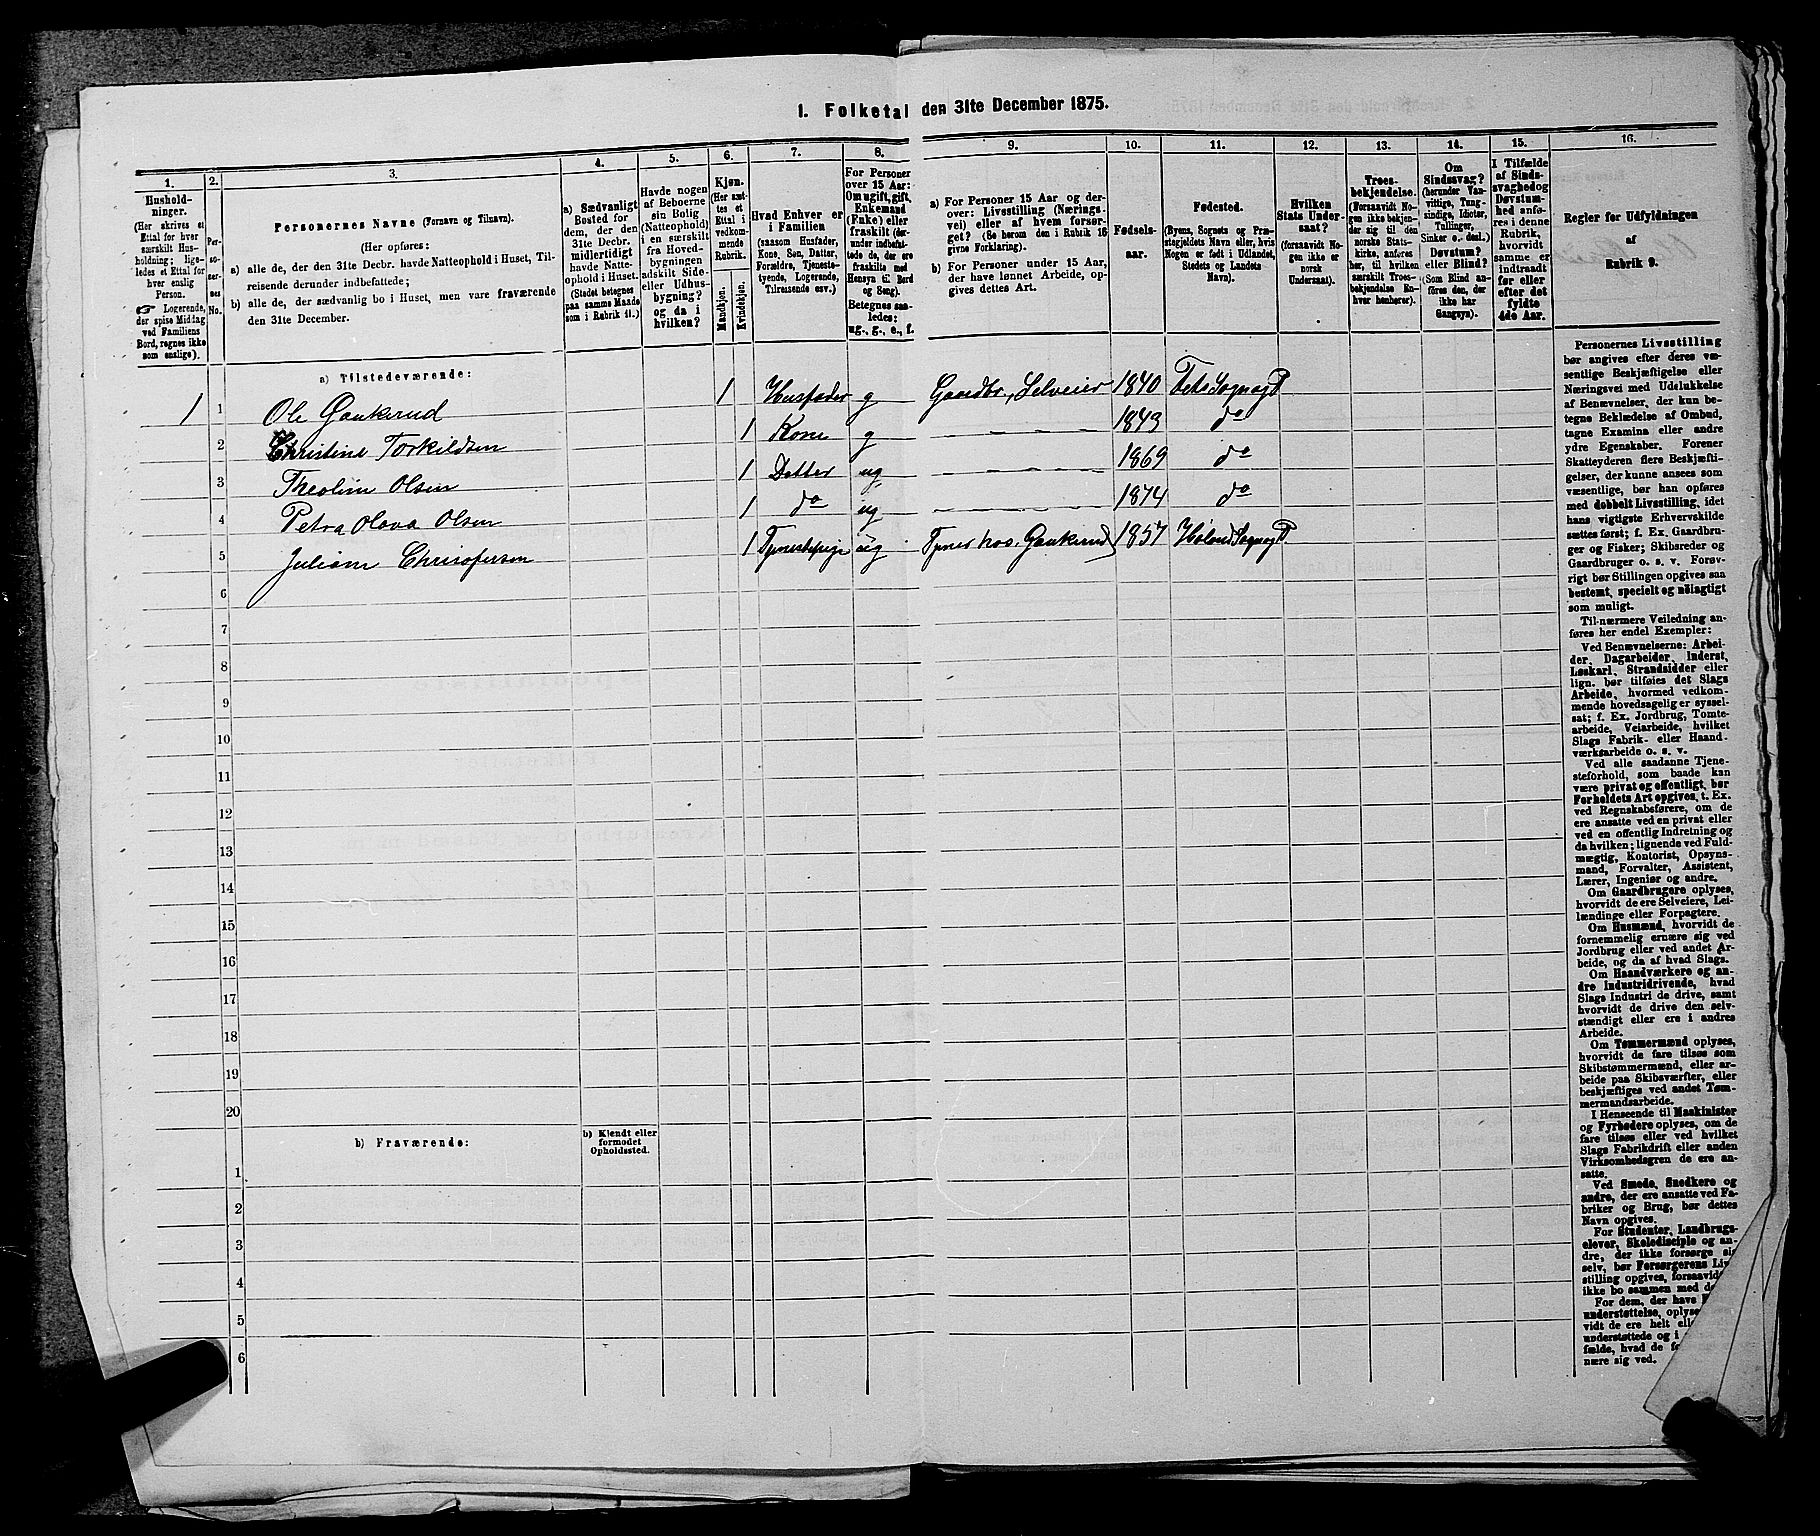 1. Folketal den 31te December 1875.
1.
Hushold-
ninger.
(Her skrives et
Ettal for hver
særskilt Hus-
holdning; lige-
ledes et Ettal for
hver enslig
Person.
Logerende,
der spise Middag
ved Familiens
Bord, regnes ikke
som enslige).
2.
Per-
so-
ner-
nes
No.
3.
Personernes Navne (Fornavn og Tilnavn).
(Her opføres:
a) alle de, der den 31te Decbr. havde Natteophold i Huset, Til-
reisende derunder indbefattede;
b) alle de, der sædvanlig bo i Huset, men vare fraværende
den 31te December.
4.
a) Sædvanligt
Bosted for
dem, der den
31te Decbr.
midlertidigt
havde Natte-
ophold i Huset.
(Stedet betegnes
paa samme Maade
som i Rubrik 11.)
5.
Havde nogen
af Beboerne
sin Bolig
(Natteophold)
i en særskilt
fra Hoved-
bygningen
adskilt Side-
eller Udhus-
bygning?
og da i
hvilken?
6.
Kjøn.
(Her sæt-
tes et
Ettal i
vedkom-
mende
Rubrik.
Mandkjøn.
Kvindekjøn.
7.
Hvad Enhver er
i Familien
(saasom Husfader,
Kone, Søn, Datter,
Forældre, Tjeneste-
tyende, Logerende,
Tilreisende osv.)
8.
For Personer
over 15 Aar:
Om ugift, gift,
Enkemand
(Enke) eller
fraskilt (der-
under indbefat-
tede de, der ere
fraskilte med
Hensyn til Bord
og Seng).
Betegnes saa-
ledes:
ug., g., e., f.
9.
a) For Personer 15 Aar og der-
over: Livsstilling (Nærings-
vei) eller af hvem forsør-
get? (Se herom den i Rubrik 16
givne Forklaring).
b) For Personer under 15 Aar,
der have lønnet Arbeide, op-
gives dettes Art.
10.
Fødsels-
aar.
11.
Fødested.
(Byens, Sognets og Præ-
stegjeldets Navn eller, hvis
Nogen er født i Udlandet,
Stedets og Landets
Navn).
12.
Hvilken
Stats Under-
saat?
(forsaavidt No-
gen ikke er
norsk
Undersaat).
13.
Troes-
bekjendelse.
(Forsaavidt No-
gen ikke bekjen-
der sig til den
norske Stats-
kirke, anføres
her, til hvilken
særskilt Troes-
bekjendelse En-
hver henhører).
14.
Om
Sindssvag?
(herunder Van-
vittige, Tung-
sindige, Idioter,
Tullinger,
Sinker o. desl.)
Døvstum?
eller Blind?
(Som Blind an-
føres den, der
ikke har
Gangsyn).
15.
I Tilfælde
af Sinds-
svaghed og
Døvstum-
hed anfø-
res i denne
Rubrik,
hvorvidt
samme er
indtraadt
før eller
efter det
fyldte
4de Aar.
16.
Regler for Udfyldningen
af
Rubrik 9.
a) Tilstedeværende:
1 1 Ole Gaukerud 1 Husfader g Gaardbr, Selveier 1840 Fets Sogn og P
2 Christine Torkildsen 1 Kone g 1843 do
3 Theoline Olsen 1 Datter ug 1869 do
4 Petra Olava Olsen 1 do ug 1874 do
5 Juliane Chrisofersen 1 Tjenestepige ug Tjener hos Gaukerud 1857 Høland Sogn og P
6
7
8
9
10
11
12
13
14
15
16
17
18
19
20
b) Fraværende:
b) Kjendt eller
formodet
Opholdssted.
1
2
3
4
5
6
Personernes Livsstilling
bør angives efter deres væ-
sentlige Beskjæftigelse eller
Næringsvei med Udelukkelse
af Benævnelser, der kun be-
tegne Beklædelse af Ombud,
tagne Examina eller andre
ydre Egenskaber. Forener
Skatteyderen flere Beskjæfti-
gelser, der kunne ansees som
væsentlige, bør han opføres
med dobbelt Livsstilling, idet
hans vigtigste Erhvervskilde
sættes først; f. Ex. Gaardbru-
ger og Fisker; Skibsreder og
Gaardbruger o. s. v. Forøv-
rigt bør Stillingen opgives saa
bestemt, specielt og nøiagtigt
som muligt.
Til nærmere Veiledning an-
føres her endel Exempler:
Ved Benævnelserne: Arbei-
der, Dagarbeider, Inderst,
Løskarl, Strandsidder eller
lign. bør tilføies det Slags
Arbeide, hvormed vedkom-
mende hovedsagelig er syssel-
sat; f. Ex. Jordbrug, Tomte-
arbeide, Veiarbeide, hvilket
Slags Fabrik- eller Haand-
værksarbeide o. s. v.
Ved alle saadanne Tjene-
steforhold, som baade kan
være privat og offentligt, bør
Forholdets Art opgives, t. Ex.
ved Regnskabsførere, om de
ere ansatte ved en privat eller
ved en offentlig Indretning og
da hvilken; lignende ved Fuld-
mægtig, Kontorist, Opsyns-
mand, Forvalter, Assistent,
Lærer, Ingeniør og andre.
Om Gaardbrugere oplyses,
hvorvidt de ere Selveiere, Lei-
lændinge eller Forpagtere.
Om Husmænd, hvorvidt de
fornemmelig ernære sig ved
Jordbrug eller ved andet Ar-
beide, og da af hvad Slags.
Om Haandværkere og an-
dre Industridrivende, hvad
Slags Industri de drive, samt
hvorvidt de drive den selv-
stændigt eller ere i andres
Arbeide.
Om Tømmermænd oplyses,
hvorvidt de fare tilsøs som
Skibstømmermænd, eller ar-
beide paa Skibsværfter, eller
beskjæftiges ved andet Tøm-
mermandsarbeide.
I Henseende til Maskinister
og Fyrbødere oplyses, om de
fare tilsøs eller ved hvilket
Slags Fabrikdrift eller anden
Virksomhedsgren de ere an-
satte.
Ved Smede, Snedkere og
andre, der ere ansatte ved Fa-
briker og Brug, bør dettes
Navn opgives.
For Studenter, Landbrugs-
elever, Skoledisciple og an-
dre, der ikke forsørge sig
selv, bør Forsørgerens Liv
stilling opgives, forsaavidt
ikke bo sammen med d
For dem, der have
understøttelse, oplys
vidt de ere helt ell
understøttede og i
fælde, hvad de
nære sig ved.